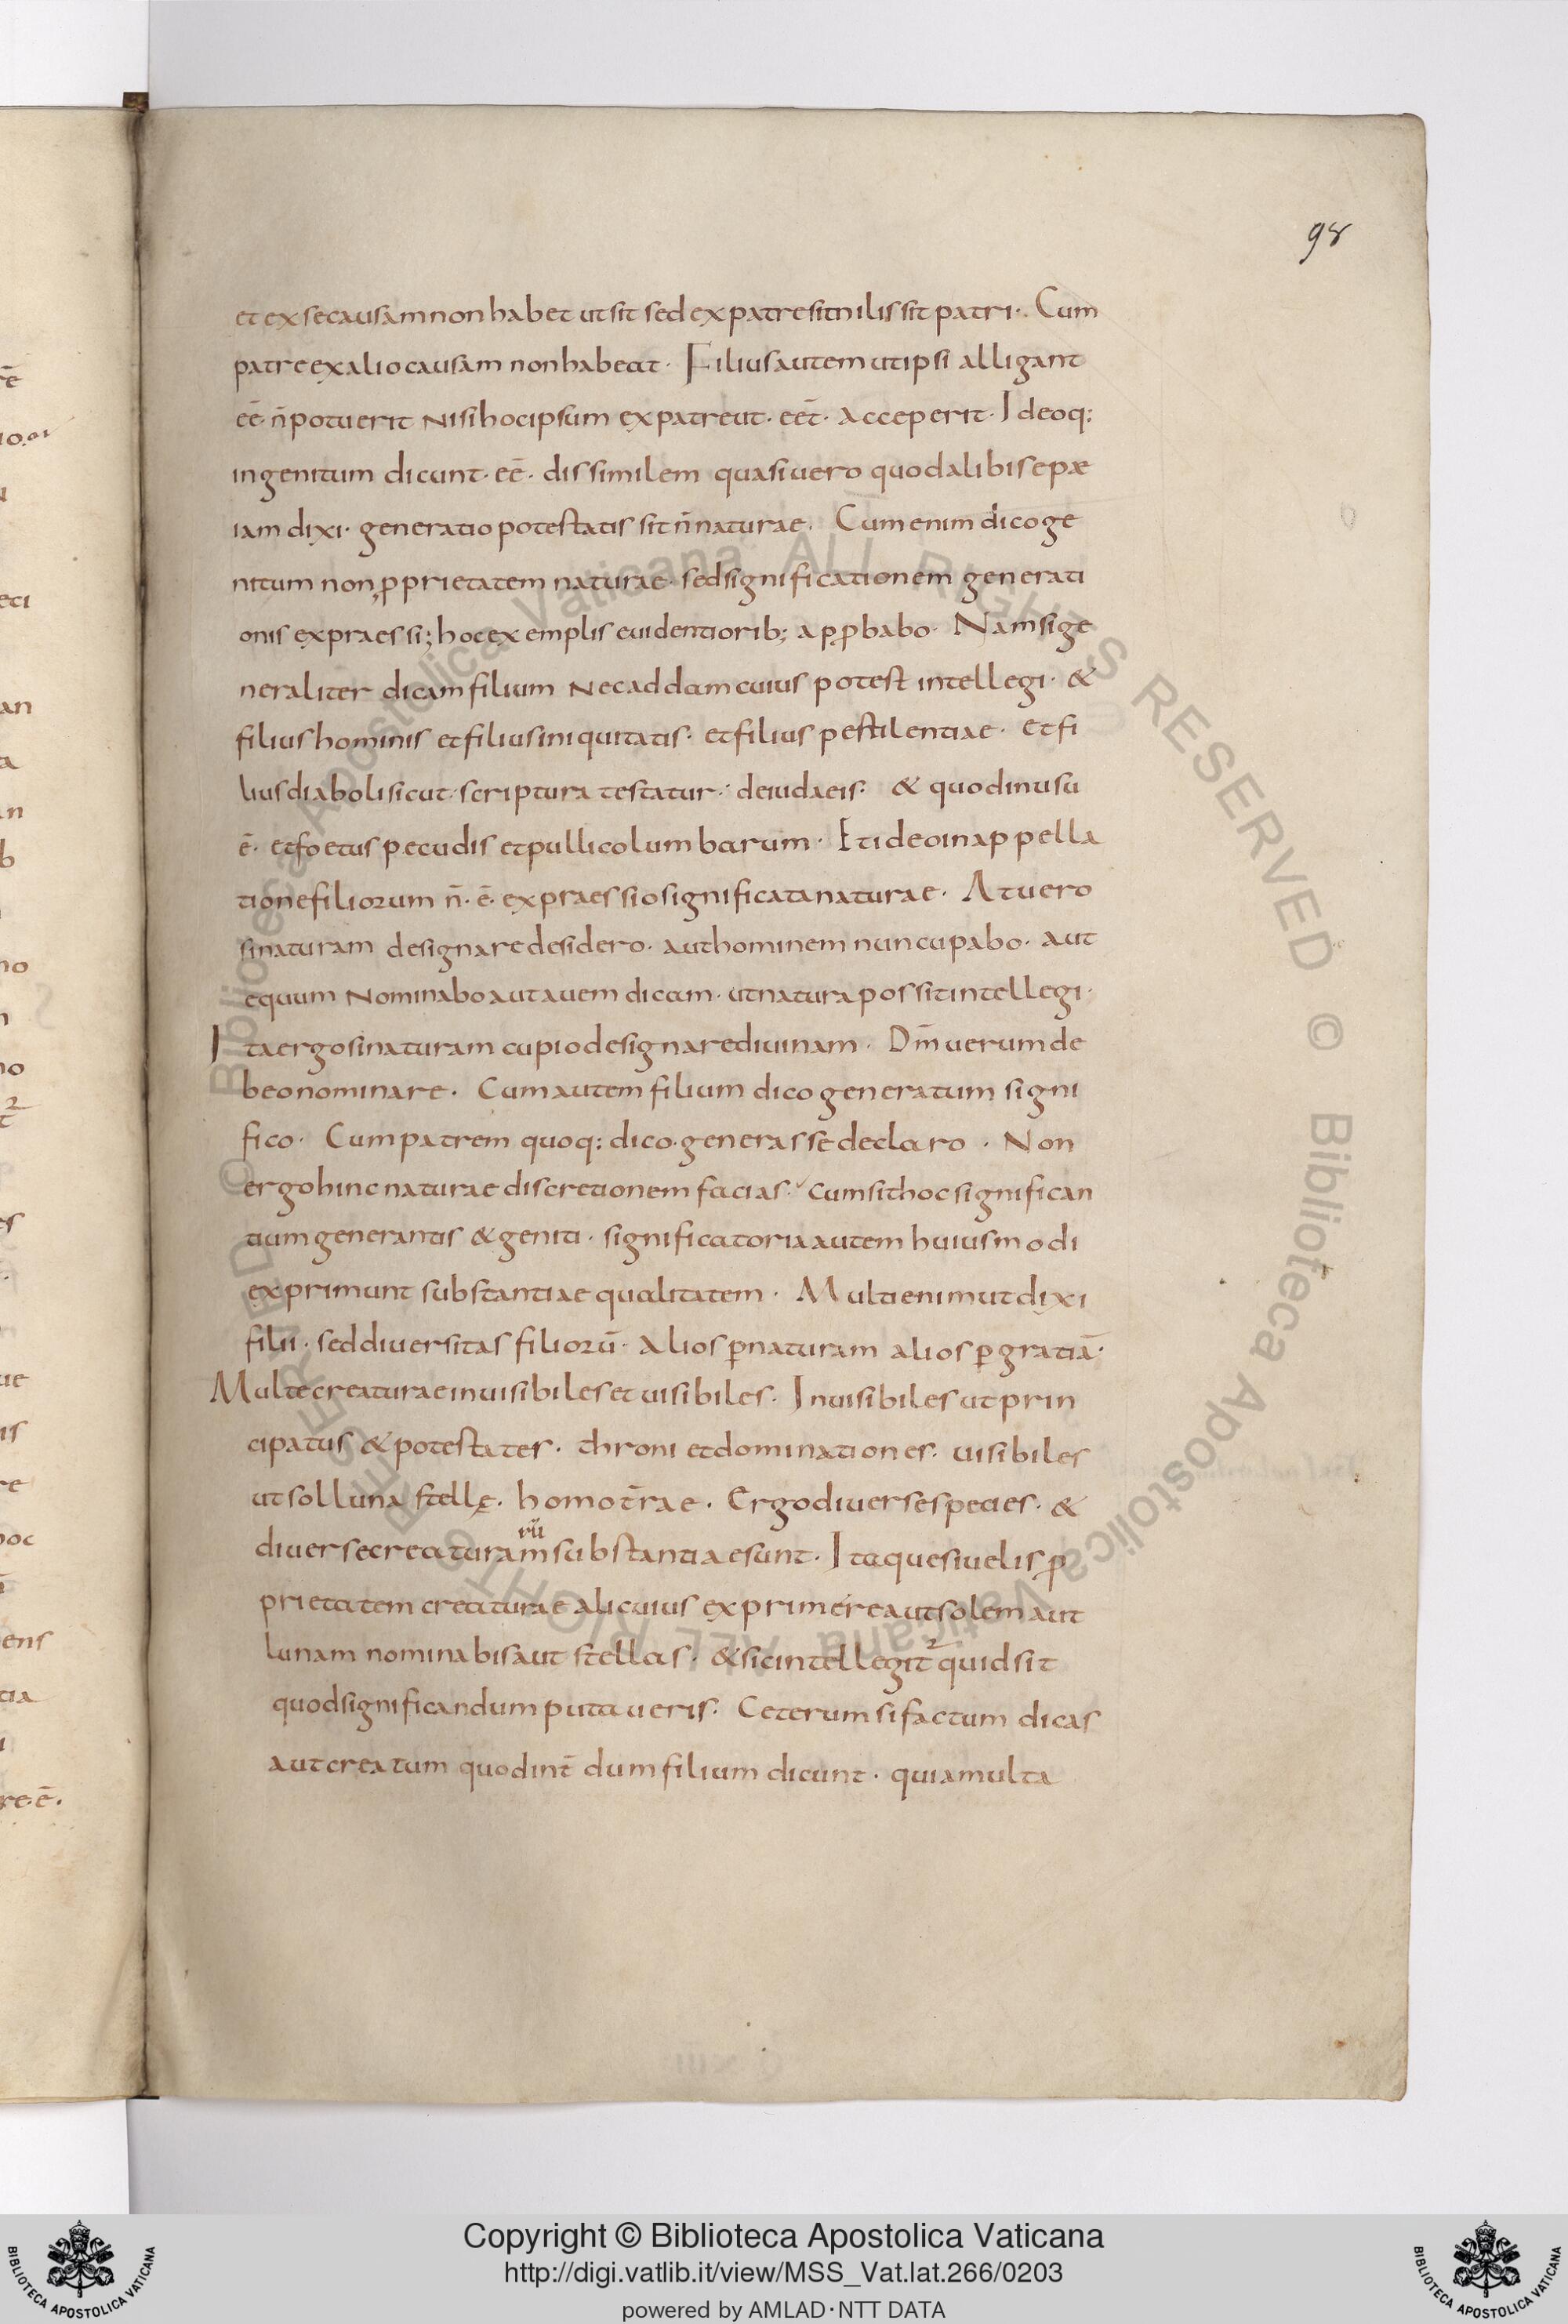 98
et ex se causam non habet ut sit sed ex patre sit nilis sit patri·. Cum
patre ex alio causam non habeat· Filius autem ut ipsi alligant
eē· n̄ potuerit Nisi hoc ipsum ex patre ut· eēt· Acceperit· Ideoq;
ingenitum dicunt· eē· dissimilem quasi uero quod alibi sepæ
iam dixi· generatio potestatis sit n̄ naturae· Cum enim dico ge
nitum non ꝓprietatem naturae· sed significationem generati
onis expraessi; hoc exemplis euidentiorib; apꝓbabo· Nam si ge
neraliter dicam filium Necaddam cuius potest intellegi· &
filius hominis et filius iniquitatis· et filius pestilentiae· et fi
lius diaboli sicut· scriptura testatur· de iudaeis· & quod in usu
ē· et foetus pecudis et pulli columbarum· Et ideo in appella
tione filiorum n̄· ē· expraessio significata naturae· At uero
si naturam designare desidero· aut hominem nuncupabo· aut
equum Nominabo aut auem dicam· ut natura possit intellegi·
Ita ergo si naturam cupio designare diuinam· Dm̄ uerum de
beo nominare· Cum autem filium dico generatum signi
fico· Cum patrem quoq; dico· generasse declaro· Non
ergo hinc naturae discretionem facias· cum sit hoc significan
tium generantis & geniti· significatoria autem huiusmodi
exprimunt substantiae qualitatem· Multi enim ut dixi
filii· sed diuersitas filiorū· Alios ꝑ naturam alios ꝑ gratiā·
Multe creaturae inuisibiles et uisibiles· Inuisibiles ut prin
cipatus & potestates· throni et dominationes· uisibiles
ut sol luna stellę· homo t̄rae· Ergo diuerse species· &
rū
diuerse creaturam substantiae sunt· Itaque si uelis ꝓ
prietatem creaturae alicuius exprimere aut solem aut
lunam nominabis aut stellas· & sic intellegit² quid sit
quod significandum putaueris· Ceterum si factum dicas
aut creatum quod int̄dum filium dicunt· quia multa
Copyright © Biblioteca Apostolica Vaticana
http://digi.vatlib.it/view/MSS_Vat.lat.266/0203
powered by AMLAD·NTT DATA